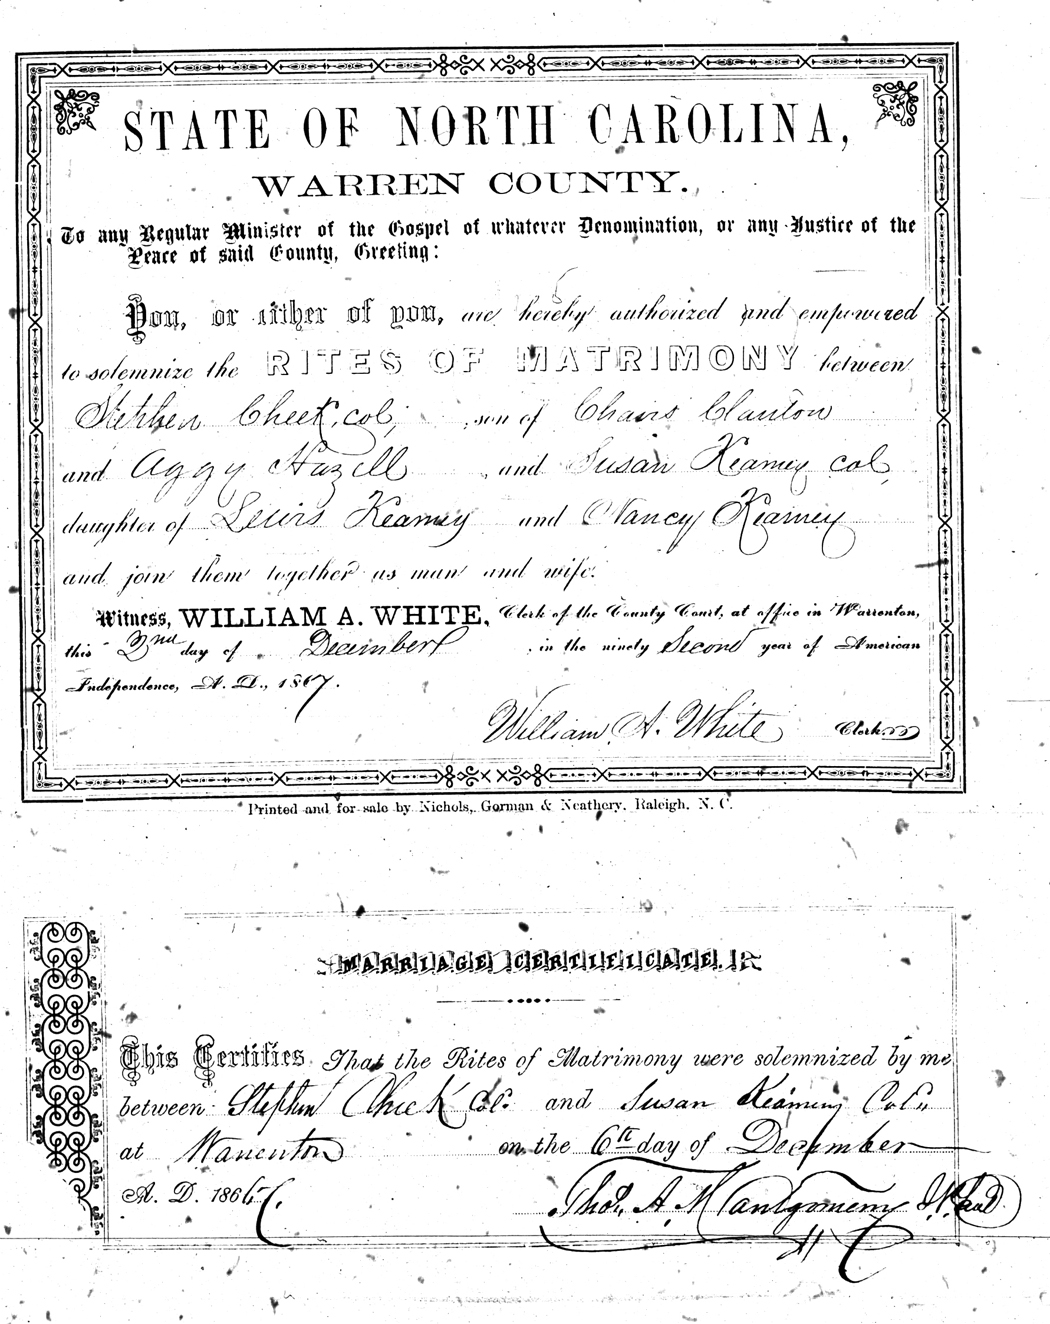 STATE OF NORTH CAROLINA,
WARREN COUNTY.
To any Regular Minister of the Gospel of whatever Denomination, or any Justice of the
Peace of said County, Greeting:
You, or either of you, are hereby authorized and empowered
to solemnize the RITES OF MATRIMONY between
Stephen Cheek, col, son of Clanton
and Aggy Hazell and Susan Kearney col,
daughter of Lewis Kearney and Nancy Kearney
and join them together as man and wife.
Witness, WILLIAM A. WHITE, Clerk of the County Court, at office in Warrenton,
this 2nd day of December in the ninety Second year of American
Independence, A. D., 1867.
William A. White Clerk
Printed and for sale by Nichols, Gorman & Neathery, Raleigh, N. C.
MARRIAGE CERTIFICATE.
This Certifies That the Rites of Matrimony were solemnized by me
between Stephen Cheek Col. and Susan Kearney Col.
at Warrenton on the 6th day of December
A. D. 1867.
Thos. A. Montgomery